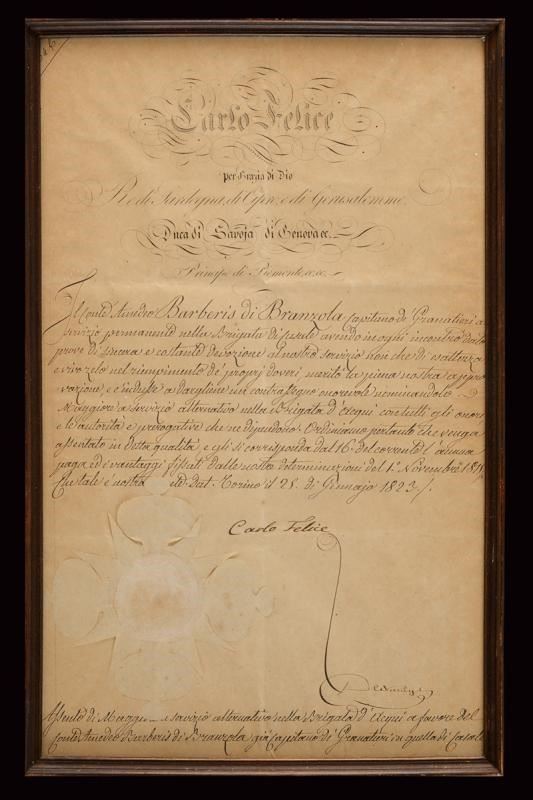 Carlo Felice
per Grazia di Dio
Re di Sardegna, di Cipro, e di Gerusalemme,
Duca di Savoja di Genova ec.
Principe di Piemonte, ec. ec.
Il Conte Amedeo Barberis di Branzola Capitano di Granatieri a
servizio permanente nella Brigata di Casale avendo in ogni incontro date
prove di sincera e costante devozione al nostro servizio non che di esattezza
e vivo zelo nel riempimento de' proprj doveri meritò la piena nostra appro
vazione, e c'indusse a dargliene un contrassegno onorevole nominandolo
Maggiore a servizio alternativo nella Brigata d'Acqui con tutti gli onori
e le autorità e prerogative che ne dipendono. Ordiniamo pertanto che venga
assentato in detta qualità, e gli si corrisponda dal 16 del corrente l'annua
paga ed i vantaggi fissati dalle nostre determinazioni del 1.º Novembre
Che tale è nostra Dat. Torino il 28. di Gennajo 1823.
Carlo Felice
Assento di Maggiore a servizio alternativo nella Brigata d'Acqui a favore del
Conte Amedeo Barberis di Branzola già Capitano di Granatieri in quella di Casale